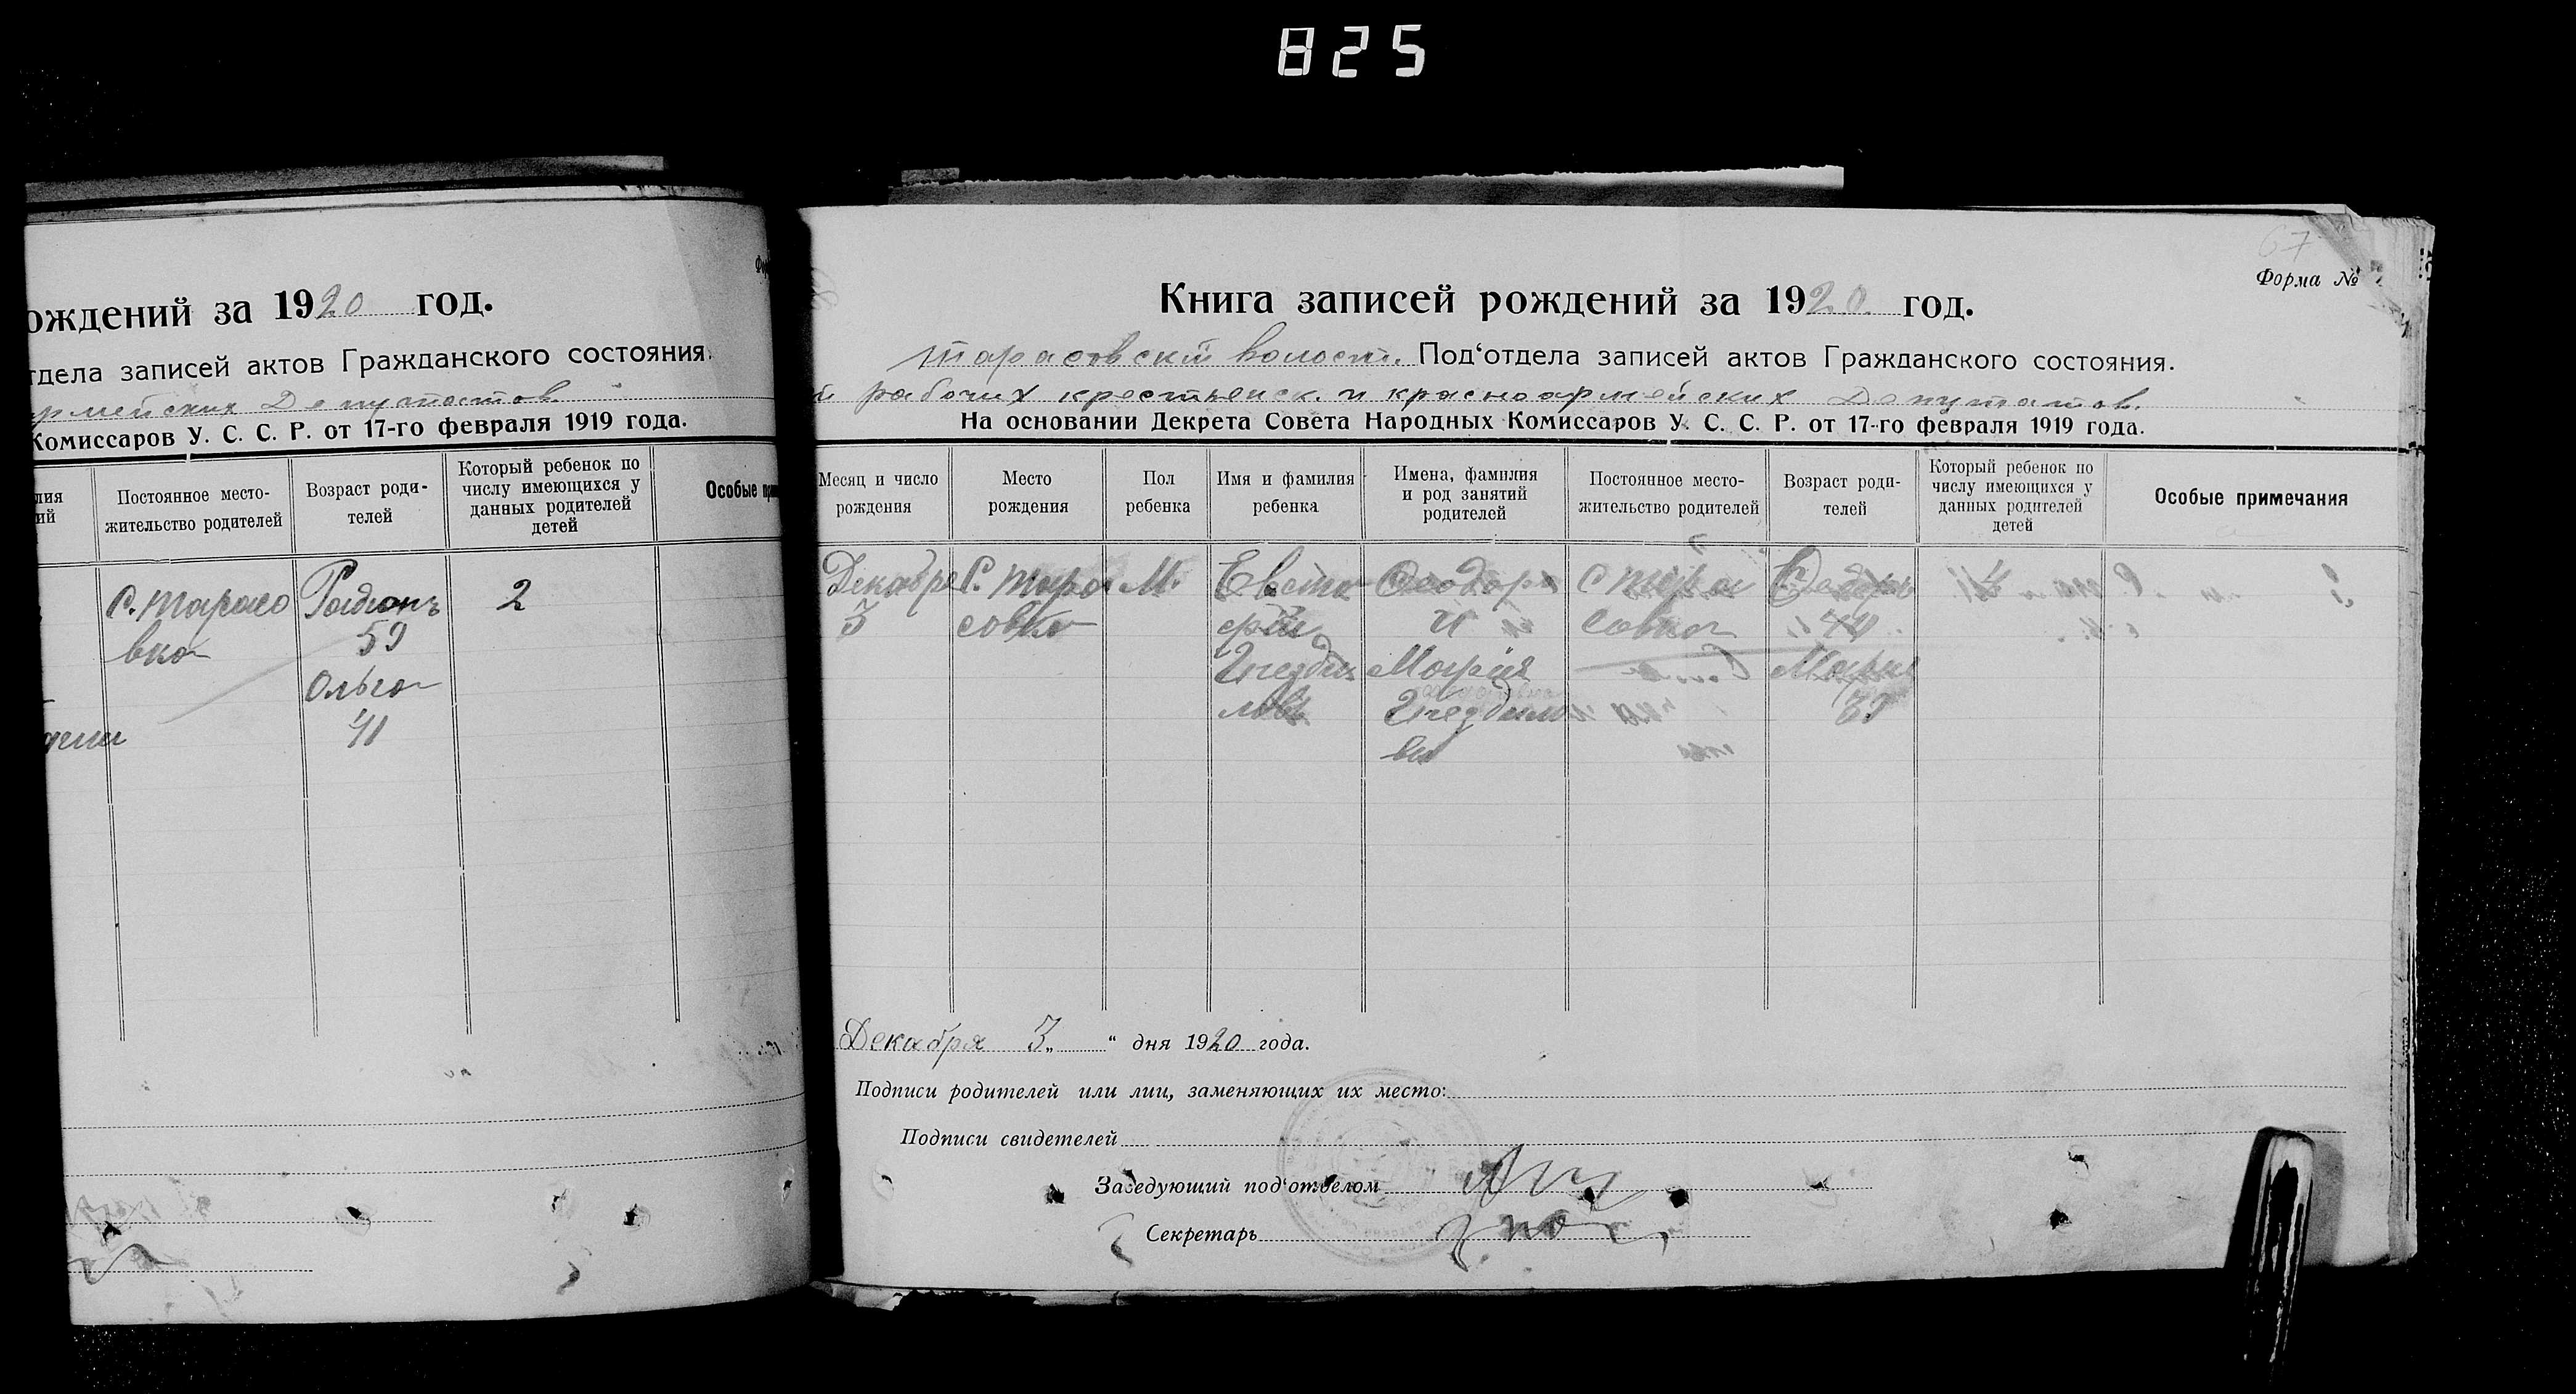 825
ождений за 1920 год.
тдела записей актов Гражданского состояния.
рмейских Депутатов
Комиссаров У. С. С. Р. от 17-го февраля 1919 года.
лия
ий
Постоянное место-
жительство родителей
Возраст роди-
телей
Который ребенок по
числу имеющихся у
данных родителей
детей
Особые
с. Тарасо
вка
Радионъ
59
Ольга
41
2
67
Форма №
Книга записей рождений за 1920 год.
Тарасовский волост. Под‘отдела записей актов Гражданского состояния.
й рабочих крестьянск. и красноармейских Депутатов.
На основании Декрета Совета Народных Комиссаров У. С. С. Р. от 17-го февраля 1919 года.
Месяц и число
рождения
Место
рождения
Пол
ребенка
Имя и фамилия
ребенка
Имена, фамилия
и род занятий
родителей
Постоянное место-
жительство родителей
Возраст роди-
телей
Который ребенок по
числу имеющихся у
данных родителей
детей
Особые примечания
Декабря
3
С. Тара
совка
М.
Евста
фiй
Гнезди
ловъ
Феодоръ
и
Мария
Гнездило
вы
с Тара
совка
Федоръ
44
Мария
39
Декабря 3 „ “ дня 1920 года.
Подписи родителей или лиц, заменяющих их место:
Подписи свидетелей
Заведующий под‘отделом
Секретарь